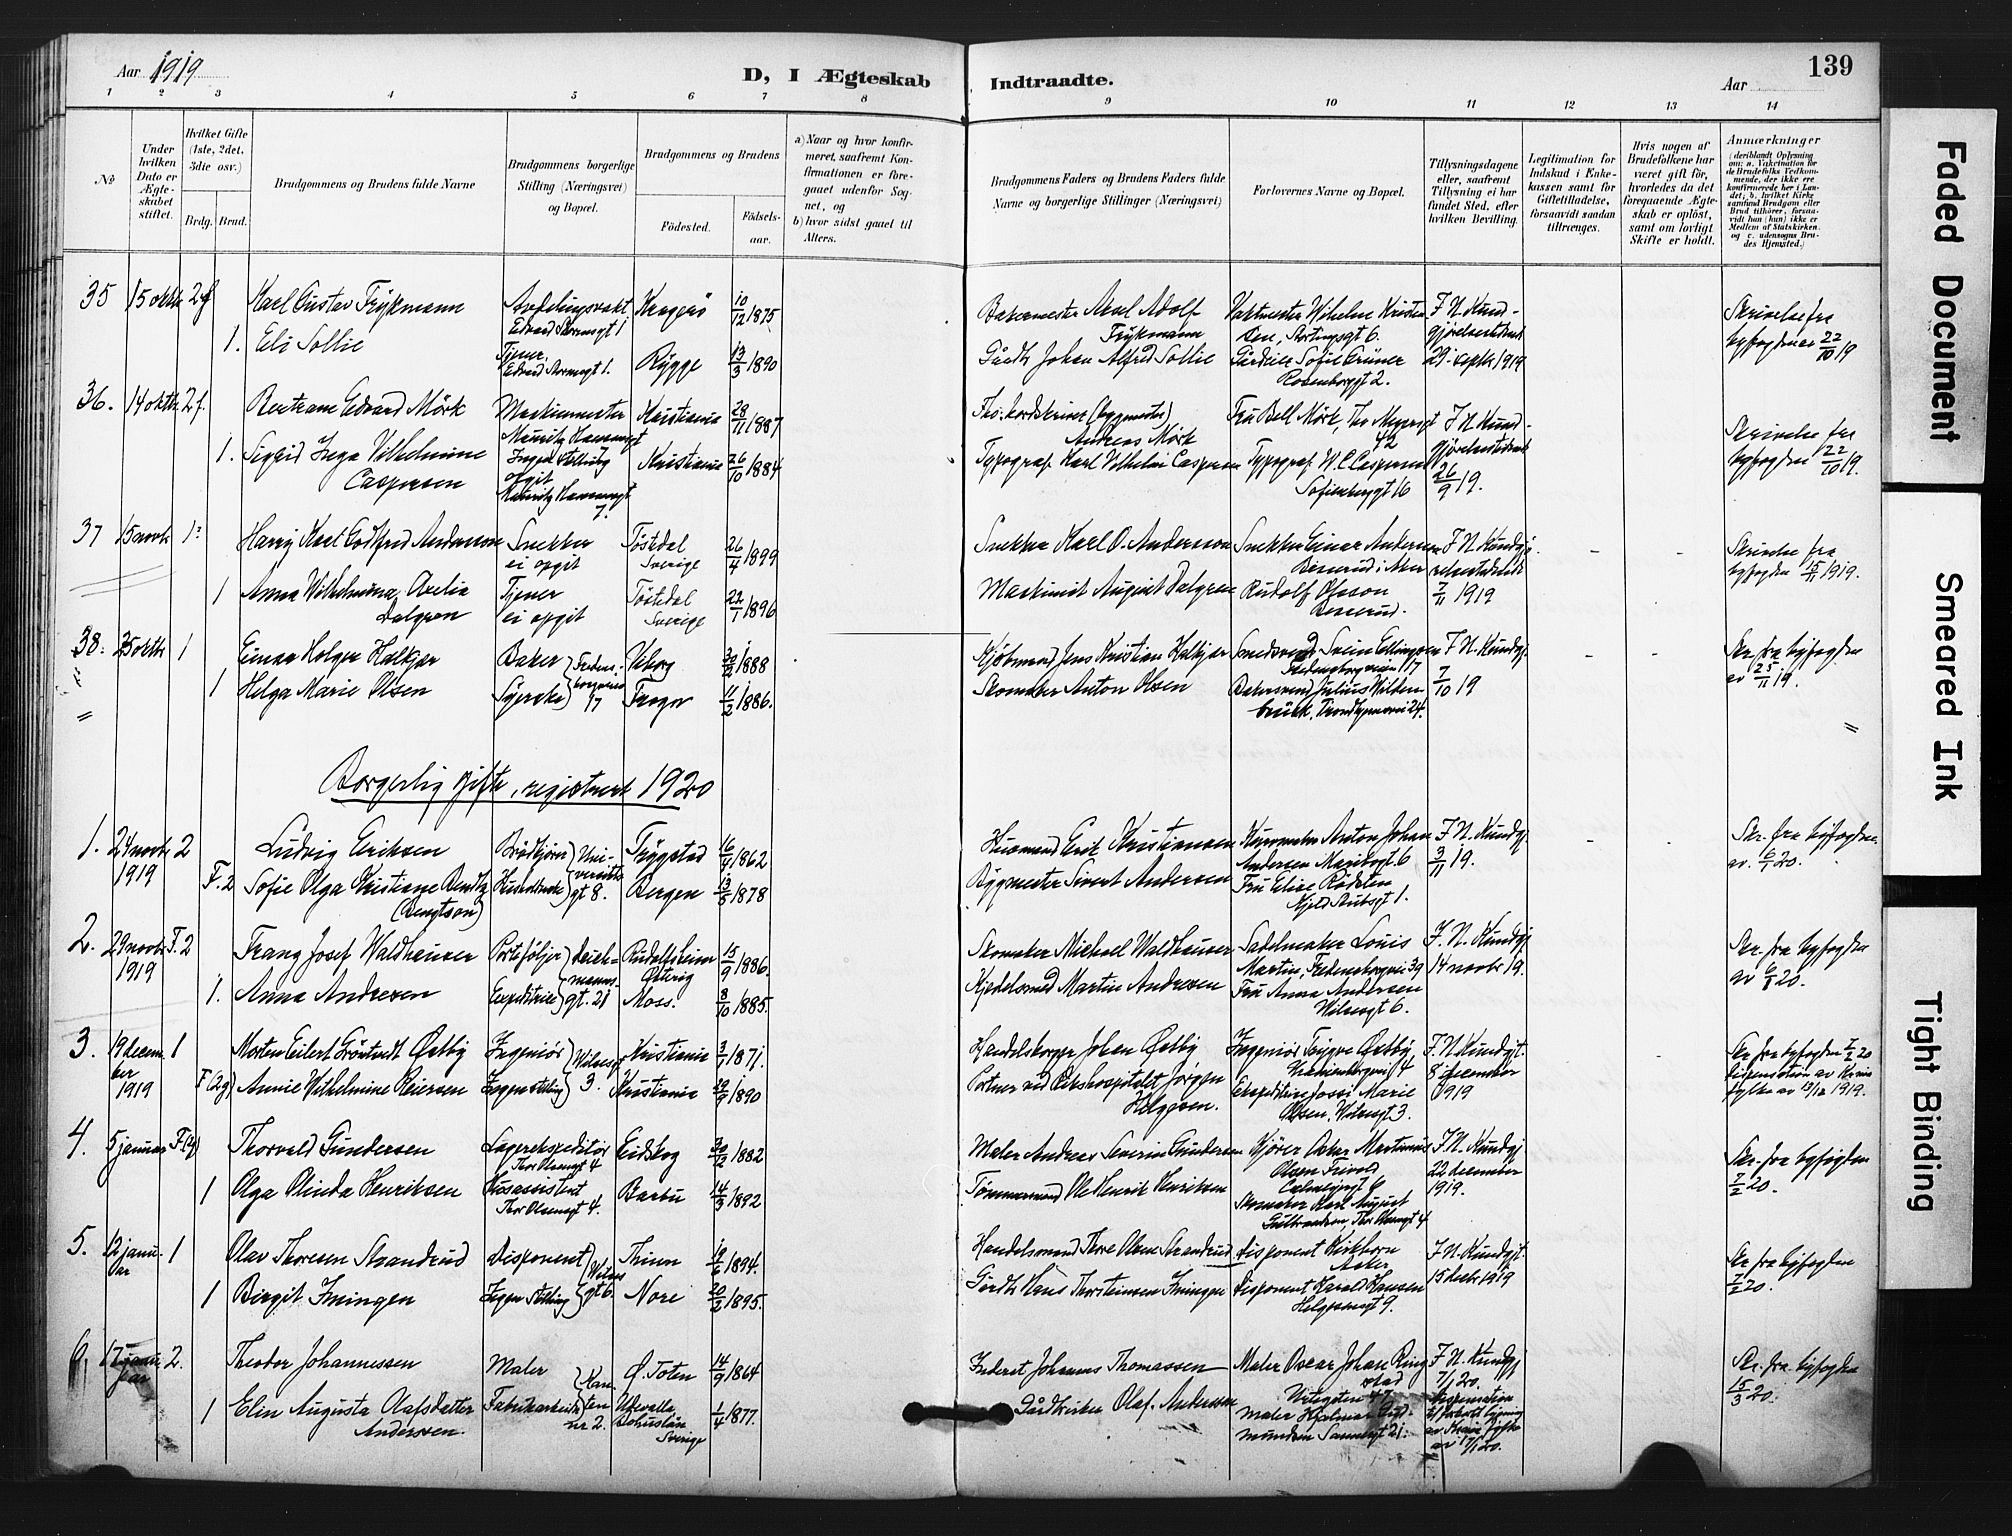 Aar 1919
D, I Ægteskab Indtraadte.
139
Aar
1 2 3 4 5 6 7 8 9 10 11 12 13 14
No
Under hvilken Dato er Ægteskabet stiftet.
Hvilket Gifte (1ste, 2det, 3die osv.)
Brdg. Brud.
Brudgommens og Brudens fulde Navne
Brudgommens borgerlige Stilling (Næringsvei) og Bopæl.
Brudgommens og Brudens
Fødested.
Fødselsaar.
a) Naar og hvor konfirmeret, saafremt Konfirmationen er foregaaet udenfor Sognet, og
b) hvor sidst gaaet til Alters.
Brudgommens Faders og Brudens Faders fulde Navne og borgerlige Stillinger (Næringsvei)
Forlovernes Navne og Bopæl.
Tillysningsdagene eller, saafremt Tillysning ei har fundet Sted, efter hvilken Bevilling.
Legitimation for Indskud i Enkekassen samt for Giftetilladelse, forsaavidt saadan tiltrænges.
Hvis nogen af Brudefolkene har været gift før, hvorledes da det foregaaende Ægteskab er opløst, samt om lovligt Skifte er holdt.
Anmærkninger
35 15 oktbr 2 f Karl Gustav Frykmann Avdelingsvakt Kragerø 10/12 1875 Bakermester Axel Adolf Vaktmester Wilhelm Kristen- F. N. Kund- Skrivelse fra
Edvard Stormsgt 1 Frykmann sen, Stortingsgt 6. gjørelsestidende byfogden 22/10 19
1. Eli Sollie Tjener Rygge 13/3 1890 Gårdbr. Johan Alfred Sollie Sofie Grüner 29. septbr 1919
Edvard Stormsgt 1. Rosenborggt 2.
36. 14 oktbr. 2 f. Bertram Edvard Mörk Maskinmester Kristiania 28/11 1887 (bygmester) Fru Bell Mörk, Thv. Meyersgt F N Kund- Skrivelse fra
Mauritz Hansensgt 7 Andreas Mörk 42 gjørelsestidende byfogden 22/10 19.
1. Sigrid Inga Vilhelmine Ingen stilling Kristiania 26/10 1884 Typograf Karl Vilhelm Caspersen Typograf W. C. Caspersen 26/9 19.
Caspersen opgit Sofienberggt 16
Mauritz Hansensgt 7.
37 15 novbr 1. Harry Karl Godtfred Andersson Snekker Töstedal 26/4 1899 Snekker Karl O. Andersson Snekker Einar Andersen F N Kundgj- Skrivelse fra
ei opgit Sverige Besserud i Aker relsestidende byfogden 15/11 1919.
1 Anna Wilhelmina Axelia Tjener Töstedal 22/1 1896 Maskinist August Dalgren Rudolf Olsson 7/11 1919
Dalgren ei opgit Sverige Besserud.
38. 25 oktbr 1 Einar Holger Halkjær Baker Fredens- Viborg 30/9 1888 Kjøbmand Jens Kristian Halkjær Smedsvend Svein Ellingsen F. N. Kundgj. Skr. fra byfogden
borgveien 17 Fredensborgveien 17 7/10 19 av 25/11 19.
1 Helga Marie Olsen Syerske Frogn 11/2 1886. Skomaker Anton Olsen Bakersvend Julius Wilden-
brück, Trondhjemsvei 24.
Borgerlig gifte, registrert 1920
1. 24 novbr 2 Ludvig Eriksen Brødkjører Uni- Trøgstad 16/4 1862 Husmand Erik Kristiansen Anton Johan F. N. Kundgj. Skr. fra byfogden
1919 versitets- Andersen Maribogt 6 3/11 19. av 6/1 20.
F. 2 Sofie Olga Kristiane Bendtz Husholderske gt 8. Bergen 13/8 1878 Bygmester Sivert Andersen Fru Elise Rödsten
(Bengtson) Kjeld Stubsgt 1.
2. 29 novbr F. 2 Franz Josef Waldhauser Porteføljer Deich- Rudolfsheim 15/9 1886. Skomaker Michael Waldhauser Sadelmaker Louis F. N. Kundgj Skr. fra byfogden
1919 manns- Østerrig Martin, Fredensborgvei 39 14 novbr 19. av 6/1 20.
1. Anna Andresen Expeditrice gt. 21 Moss. 8/10 1885. Kjedelsmed Martin Andresen Fru Anna Andersen
Wilsesgt 6.
3. 19 decem- 1 Morten Eilert Gröntvedt Østby Ingeniör Wilsesgt Kristiania 3/7 1871. Handelsborger Johan Østby Ingeniör Trygve Østby F. N. Kundgjt. Skr. fra byfogden 7/2 20
ber 1919 4 8 december dispensation av Krania
F (2g) Annie Wilhelmine Reiersen Ingen stilling 3. Kristiania 29/9 1890 Portner ved Rikshospitalet Jørgen Ekspeditrice Jossi Marie 1919 fylke av 13/12 1919.
Helgesen. Olsen, Wilsesgt 3.
4. 5 januar F. (2g) Thorvald Gundersen Lagerekspeditör Eidskog 30/12 1882 Maler Andreas Severin Gundersen Kjörer Oskar Martinius F. N. Kundgj Skr. fra byfogden
Thor Olsensgt 4 Olsen Frivold 22 december 7/2 20.
1 Olga Olinda Henriksen Kasassistent Barbu 14/3 1892 Tömmermand Ole Henrik Henriksen 1919.
Thor Olsensgt 4. Skomaker Karl August
Gulbrandsen, Thor Olsensgt 4
5. 12 janu- 1 Olav Thoresen Strandrud Disponent Wilses Thinn 19/6 1894. Handelsmand Thore Olsen Strandrud Disponent Kirkhorn F. N. Kundgjt. Skr fra byfogden
ar Asker 15 decbr 1919 7/2 20.
1 Birgit Iningen Ingen stilling gt 6. Nore 20/2 1895. Gårdbr. Hans Thorsteinsen Iningen Disponent Harald Hansen
Helgesensgt 9.
6. 17 janu- 2. Theodor Johannessen Maler Ø. Toten 14/9 1864 Inderst Johannes Thomassen Maler Oscar Johan Ring- F. N. Kundgj Skr. fra byfogden
ar stad 7/1 20. 15/3 20.
1 Elin Augusta Olafsdatter Fabrikarbeider nr 2. Uddevalla 1/4 1877. Olaf Anderssen Urtegaten 47 dispensation
Anderssen. Bohuslän Maler Hjalmar Gud-
Sverige mundsen Sannergt 21. av 17/1 20.
Faded Document
Smeared Ink
Tight Binding